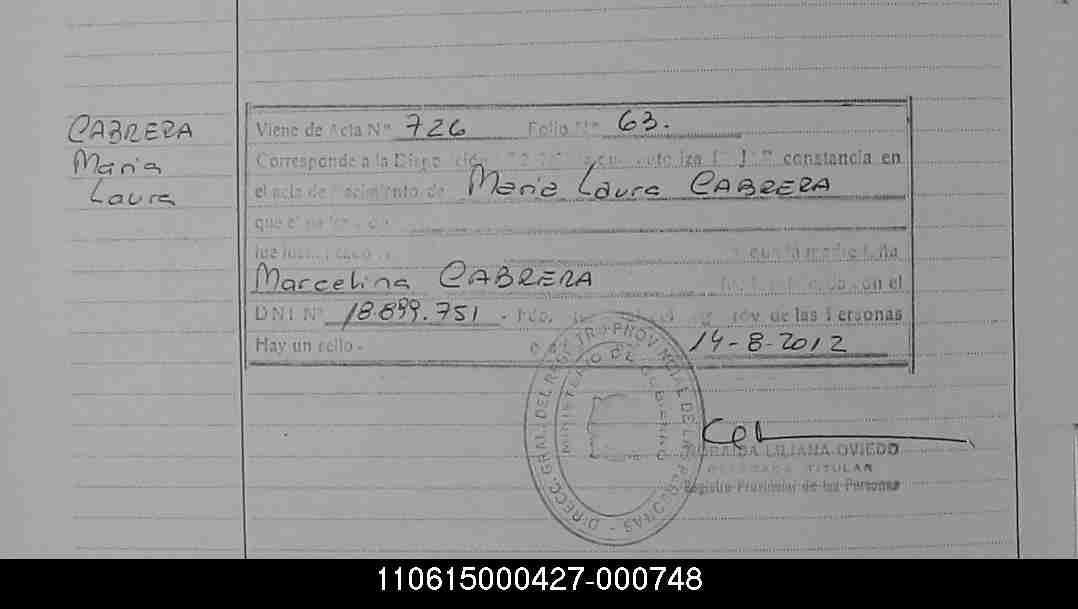 CABRERA
Maria
Laura
Viene de Acta Nº 726 Folio Nº 63.
Corresponde a la constancia en
el acta de nacimiento de Maria Laura CABRERA
que
que la madre
Marcelina CABRERA
con el
DNI Nº 18.899.751 - Fdo. de las Personas
Hay un sello - 14-8-2012
DIRECC. GRAL. DEL REGISTRO PROVINCIAL DE LAS PERSONAS
MINISTERIO DE GOBIERNO
LILIANA OVIEDO
TITULAR
Registro Provincial de las Personas
110615000427-000748